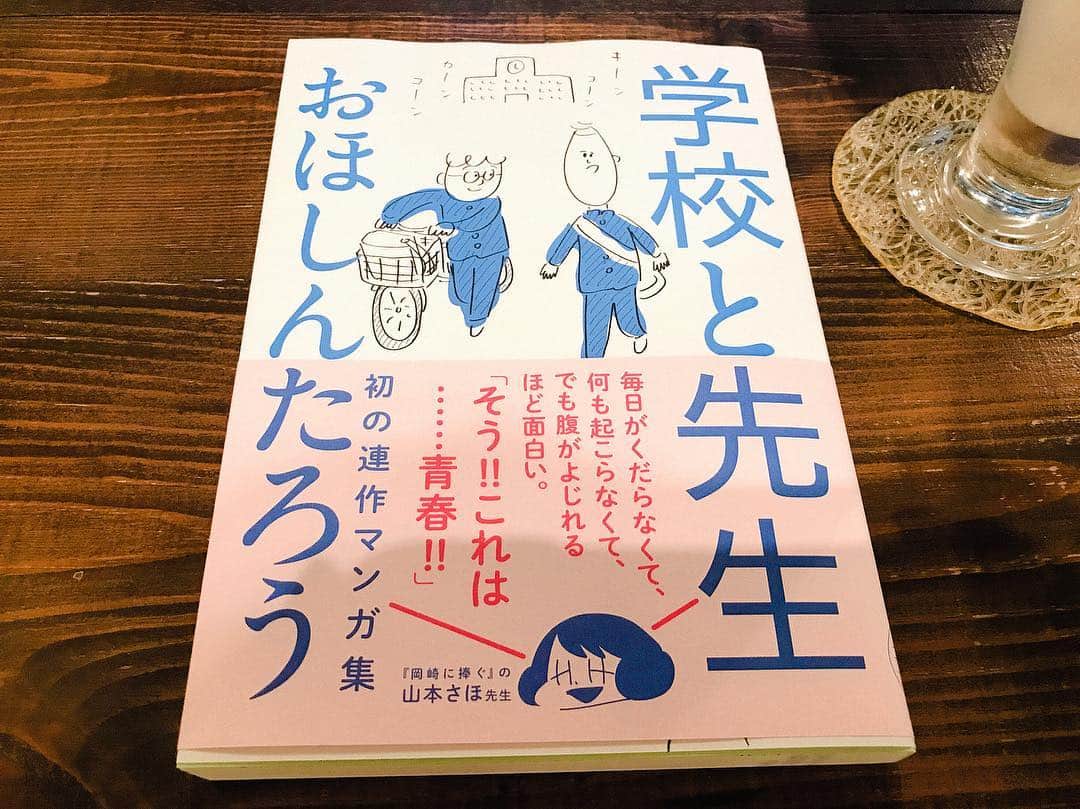 学校と先生
キーン
コーン
カーン
コーン
おほしんたろう
毎日がくだらなくて、
何も起こらなくて、
でも腹がよじれる
ほど面白い。
「そう!!これは
……青春!!」
初の連作マンガ集
『岡崎に捧ぐ』の
山本さほ先生